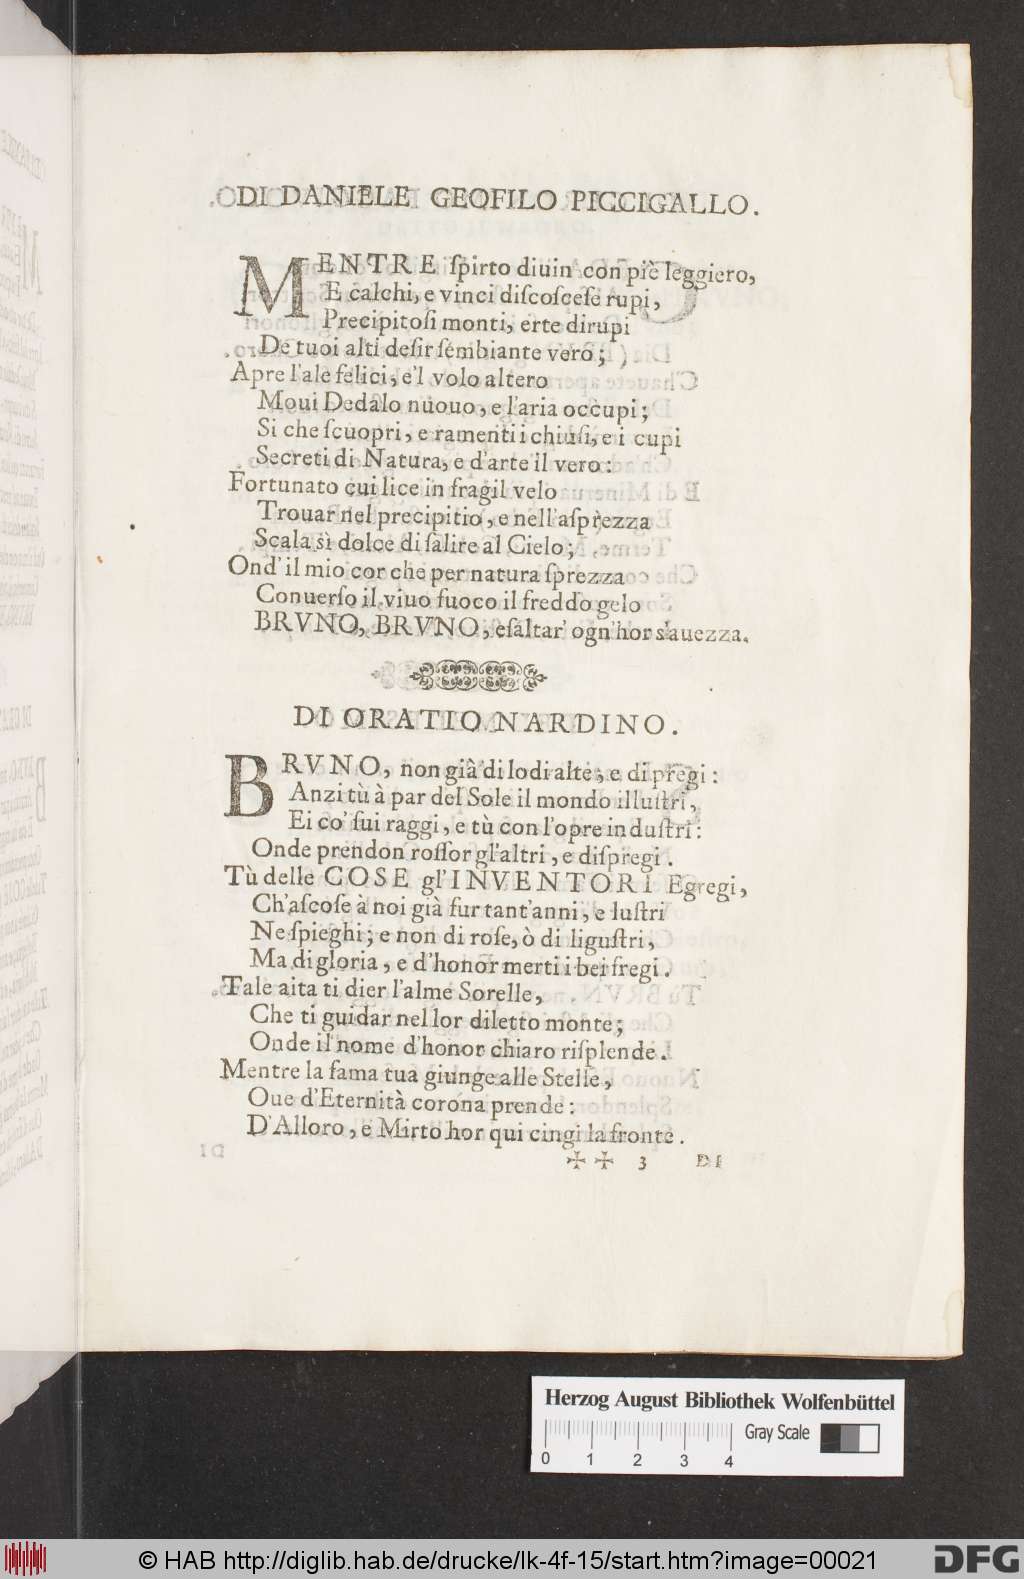 DI DANIELE GEOFILO PICCIGALLO.
MENTRE ſpirto diuin con piè leggiero,
E calchi, e vinci diſcoſceſe rupi,
Precipitoſi monti, erte dirupi
De tuoi alti deſir ſembiante vero;
Apre l'ale felici, e'l volo altero
Moui Dedalo nuouo, e l'aria occupi;
Si che ſcuopri, e ramenti i chiuſi, e i cupi
Secreti di Natura, e d'arte il vero:
Fortunato cui lice in fragil velo
Trouar nel precipitio, e nell'aſprezza
Scala sì dolce di ſalire al Cielo;
Ond' il mio cor che per natura ſprezza
Conuerſo il viuo fuoco il freddo gelo
BRVNO, BRVNO, eſaltar' ogn'hor s'auezza.
DI ORATIO NARDINO.
BRVNO, non già di lodi alte, e di pregi:
Anzi tù à par del Sole il mondo illuſtri,
Ei co' ſui raggi, e tù con l'opre induſtri:
Onde prendon roſſor gl'altri, e diſpregi.
Tù delle COSE gl'INVENTORI Egregi,
Ch'aſcoſe à noi già fur tant'anni, e luſtri
Ne ſpieghi; e non di roſe, ò di liguſtri,
Ma di gloria, e d'honor merti i bei fregi.
Tale aita ti dier l'alme Sorelle,
Che ti guidar nel lor diletto monte;
Onde il nome d'honor chiaro riſplende.
Mentre la fama tua giunge alle Stelle,
Oue d'Eternità corona prende:
D'Alloro, e Mirto hor qui cingi la fronte.
✠ ✠ 3 DI
Herzog August Bibliothek Wolfenbüttel
Gray Scale
0 1 2 3 4
© HAB http://diglib.hab.de/drucke/lk-4f-15/start.htm?image=00021
DFG